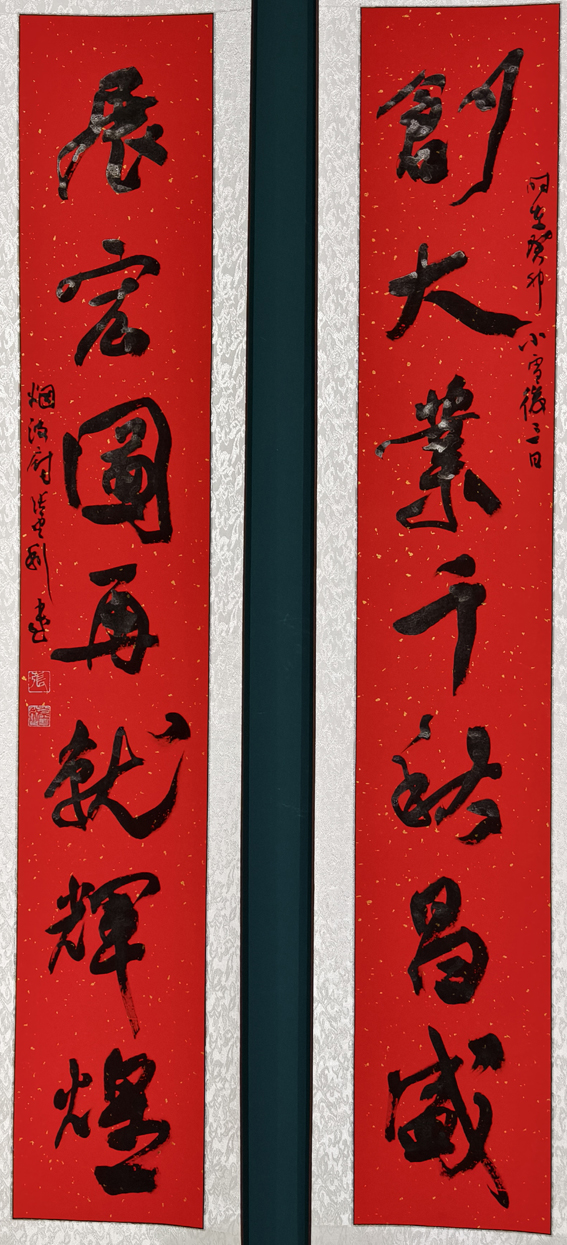 創大業千秋昌盛
時在癸卯小雪後三日
展宏圖再就輝煌
烟波 書